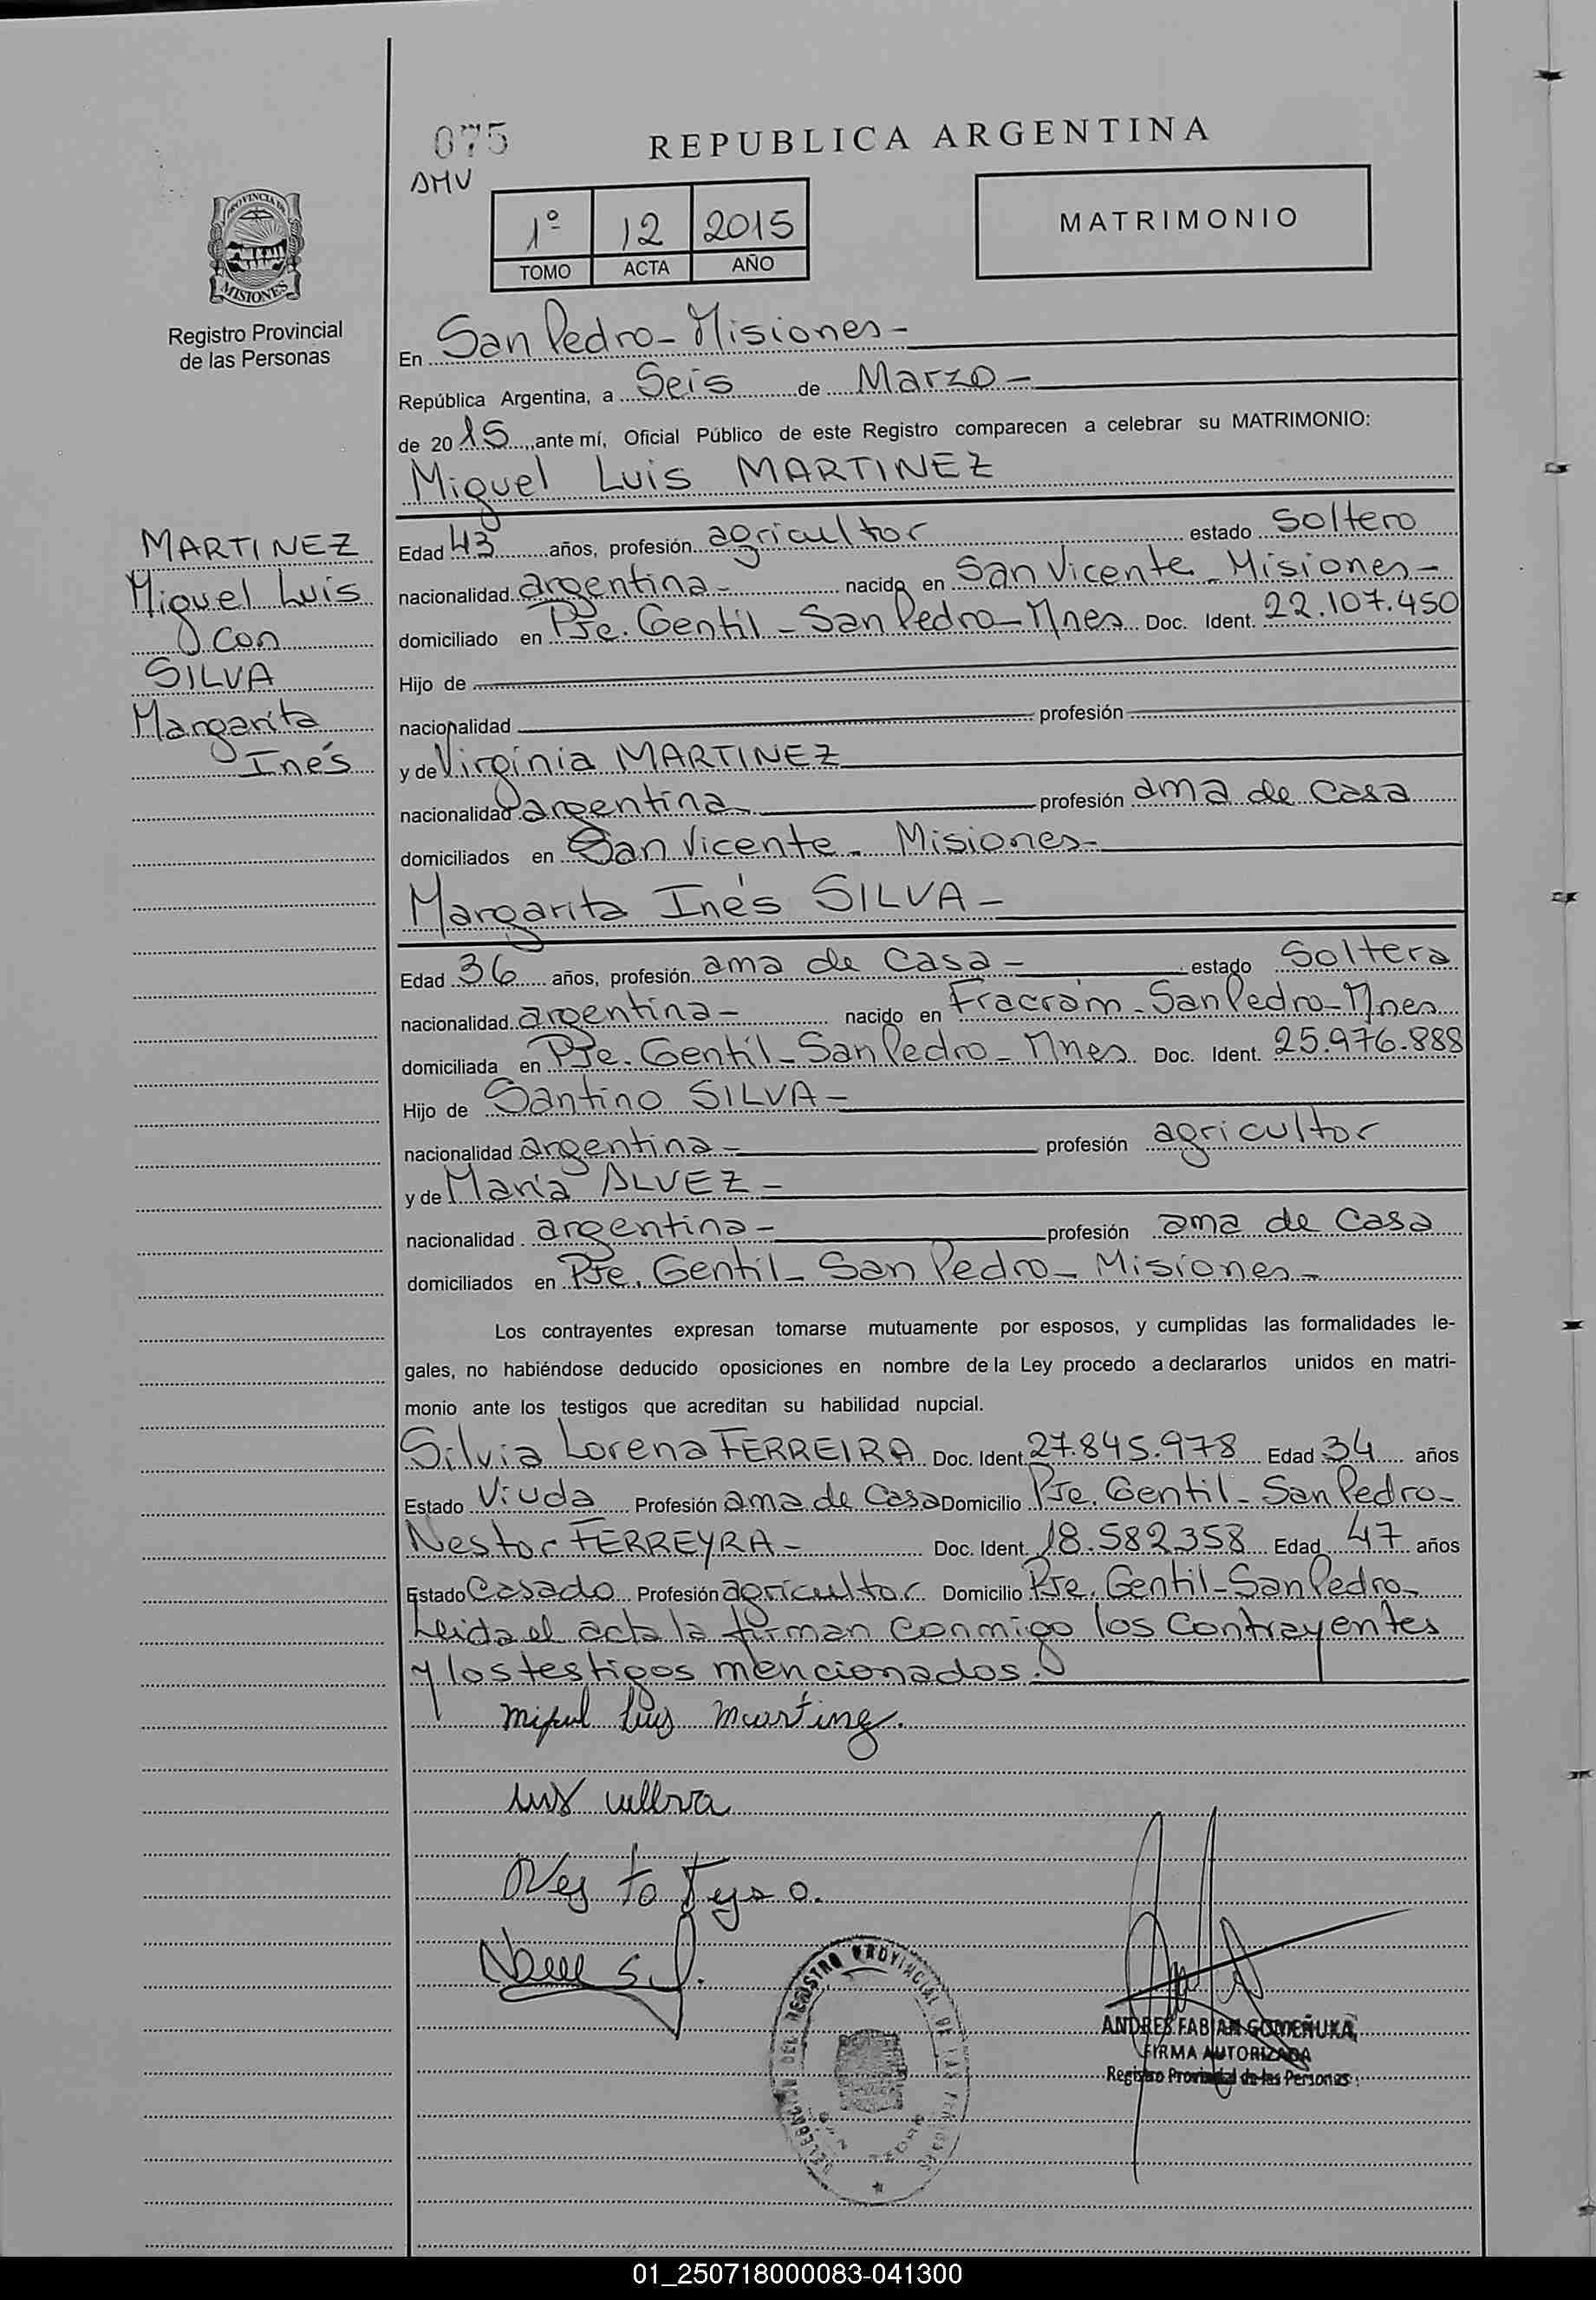 075
REPUBLICA ARGENTINA
DMV
1º 12 2015
TOMO ACTA AÑO
MATRIMONIO
PROVINCIA DE
MISIONES
Registro Provincial
de las Personas
MARTINEZ
Miguel Luis
con
SILVA
Margarita
Inés
En San Pedro - Misiones -
República Argentina, a Seis de Marzo -
de 2015, ante mí, Oficial Público de este Registro comparecen a celebrar su MATRIMONIO:
Miguel Luis MARTINEZ
Edad 43 años, profesión agricultor estado Soltero
nacionalidad argentina - nacido en San Vicente - Misiones -
domiciliado en Pje. Gentil - San Pedro - Mnes Doc. Ident. 22.107.450
Hijo de
nacionalidad profesión
y de Virginia MARTINEZ
nacionalidad argentina profesión ama de casa
domiciliados en San Vicente - Misiones -
Margarita Inés SILVA -
Edad 36 años, profesión ama de casa - estado Soltera
nacionalidad argentina - nacido en Fracrám - San Pedro - Mnes
domiciliada en Pje. Gentil - San Pedro - Mnes Doc. Ident. 25.976.888
Hijo de Santino SILVA -
nacionalidad argentina - profesión agricultor
y de María ALVEZ -
nacionalidad argentina - profesión ama de casa
domiciliados en Pje. Gentil - San Pedro - Misiones -
Los contrayentes expresan tomarse mutuamente por esposos, y cumplidas las formalidades le-
gales, no habiéndose deducido oposiciones en nombre de la Ley procedo a declararlos unidos en matri-
monio ante los testigos que acreditan su habilidad nupcial.
Silvia Lorena FERREIRA Doc. Ident. 27.845.978 Edad 34 años
Estado Viuda Profesión ama de casa Domicilio Pje. Gentil - San Pedro -
Nestor FERREYRA - Doc. Ident. 18.582.358 Edad 47 años
Estado Casado Profesión agricultor Domicilio Pje. Gentil - San Pedro -
Leida el acta la firman conmigo los contrayentes
y los testigos mencionados.
ANDRES FABIAN GOMEÑUKA
FIRMA AUTORIZADA
Registro Provincial de las Personas
REGISTRO PROVINCIAL DE LAS
01_250718000083-041300